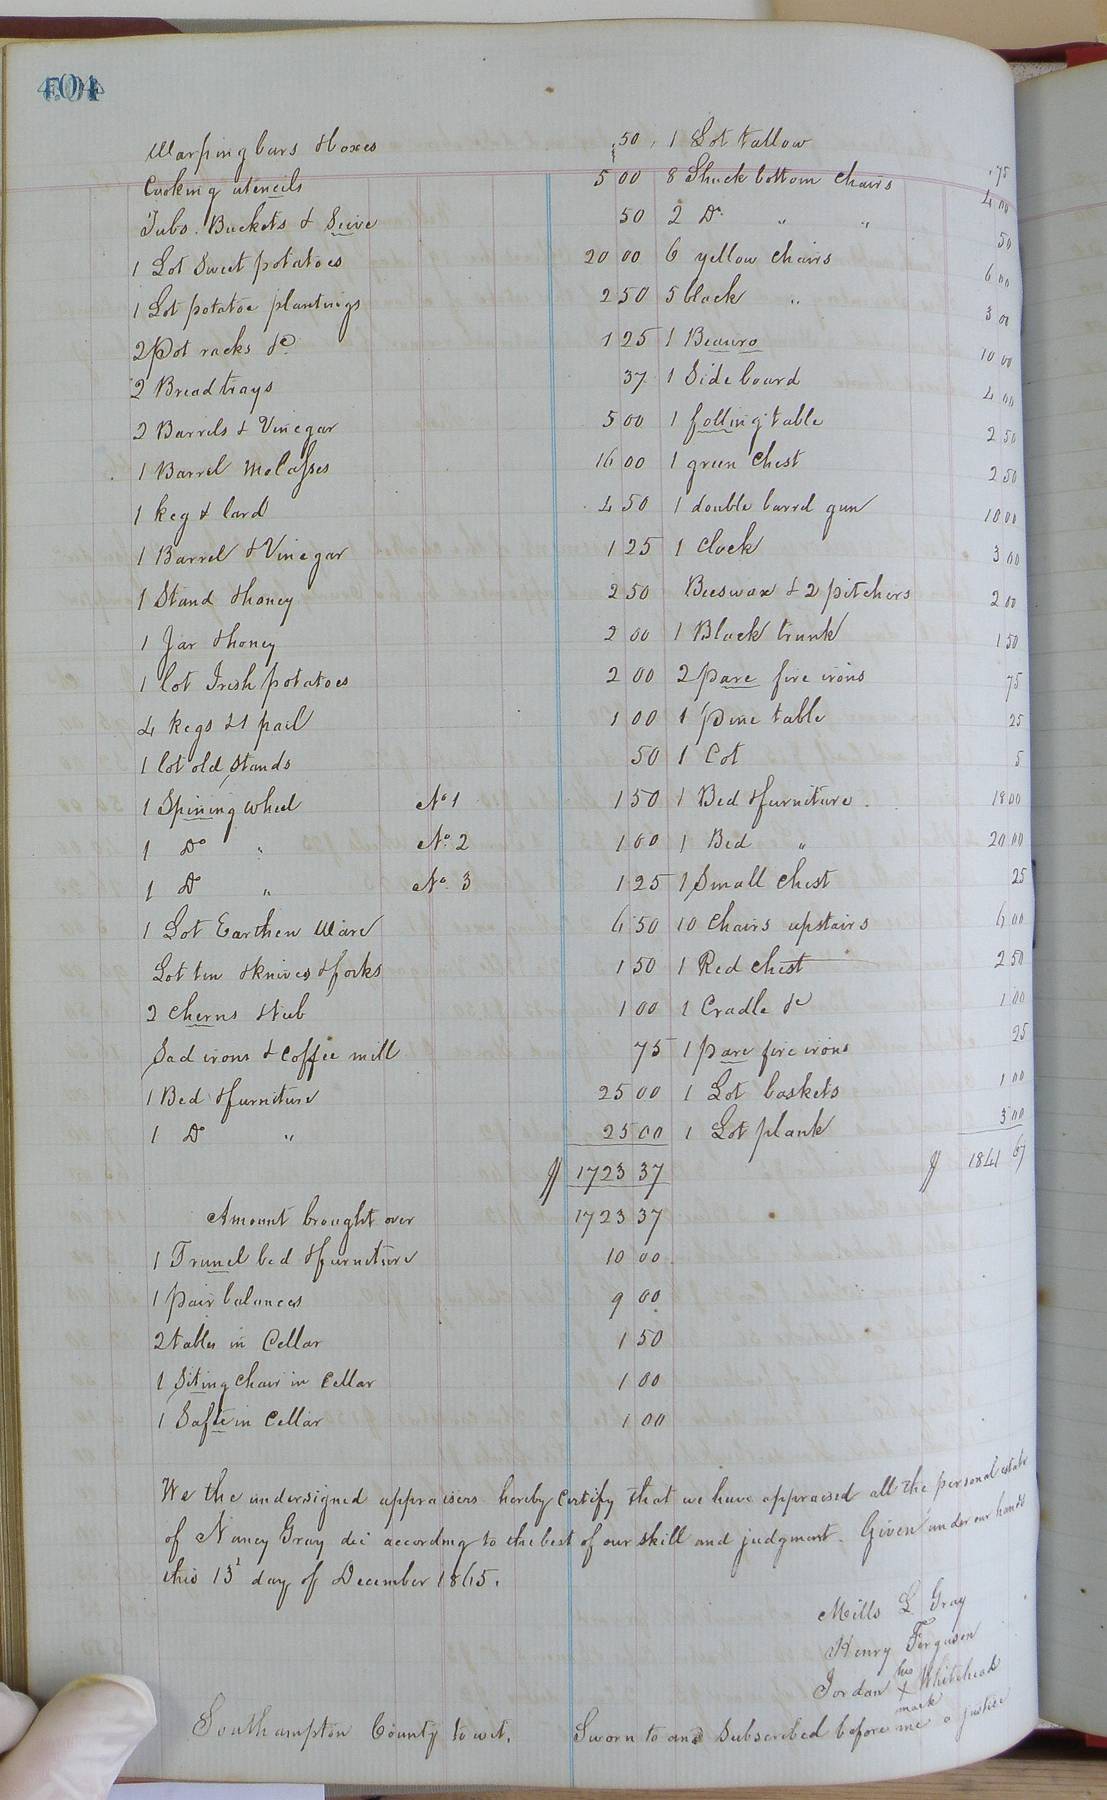 404
Warping bars & boxes ,50 1 Lot tallow ,75
Cooking utencils 5 00 8 Shuck bottom chairs 4 00
Tubs. Buckets & Seive 50 2 Do " " 50
1 Lot Sweet potatoes 20 00 6 yellow chairs 6 00
1 Lot potatoe plantings 2 50 5 black " 3 00
2 Pot racks &c 1 25 1 Beauro 10 00
2 Bread trays 37 1 Side board 4 00
2 Barrels & Vinegar 5 00 1 folling table 2 50
1 Barrel Molasses 16 00 1 green Chest 2 50
1 keg & lard 4 50 1 double barrel gun 10 00
1 Barrel & Vinegar 1 25 1 Clock 3 00
1 Stand & honey 2 50 Beeswax & 2 pitchers 2 00
1 Jar & honey 2 00 1 Black trunk 1 50
1 lot Irish potatoes 2 00 2 pare fire irons 75
4 kegs & 1 pail 1 00 1 pine table 25
1 lot old Stands 50 1 Cot 5
1 Spining wheel No 1 1 50 1 Bed & furniture 18 00
1 Do " No. 2 1 00 1 Bed " 20 00
1 Do " No. 3 1 25 1 Small chest 25
1 Lot Earthen Ware 6 50 10 chairs upstairs 6 00
Lot tin & knives & forks 1 50 1 Red chest 2 50
2 cherns & tub 1 00 1 Cradle &c 1 00
Sad irons & Coffee mill 75 1 pare fire irons 25
1 Bed & furniture 25 00 1 Lot baskets 1 00
1 Do " 25 00 1 Lot plank 3 00
$ 1723 37 $ 1841 67
Amount brought over 1723 37
1 Trunel bed & furniture 10 00
1 pair balances 9 00
2 tables in Cellar 1 50
1 Siting chair in Cellar 1 00
1 Safte in Cellar 1 00
We the undersigned appraisers hereby certify that we have appraised all the personal estate
of Nancy Gray dec according to the best of our skill and judgment. Given under our hands
this 13t day of December 1865.
Mills L Gray
Henry Ferguson
his
Jordan X Whitehead
mark
Southampton County to wit, Sworn to and Subscribed before me a justice